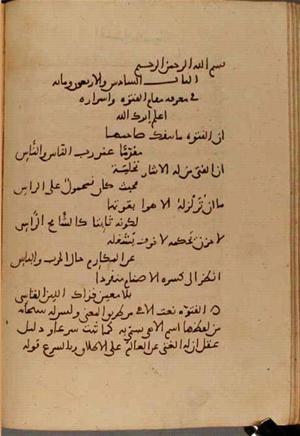 بسم الله الرحمن الرحيم
الباب السادس والاربعون ومائة
في معرفة مقام الفتوة واسراره
اعلم ايدك الله
ان الفتوة ما ينفك صاحبها
مقدما عند رب الناس والناس
ان الفتى من له الايثار تحلية
فحيث كان فمحمول على الراس
ما ان تزلزله الاهوا بقوتها
لكونه ثابتا كالشامخ الراس
لا حزن يحكمه لا خوف يشغله
عن المكارم حال الحرب والباس
انظر الى كسره الاصنام منفردا
بلا معين فذاك اللين القاسي
الفتوة نعت الاهي من طريق المعنى وليس له سبحانه
من لفظها اسم الاهي يسمى به كما ثبت شرعا ودليل
عقل ان له الغنى عن العالم على الاطلاق وبالشرع قوله